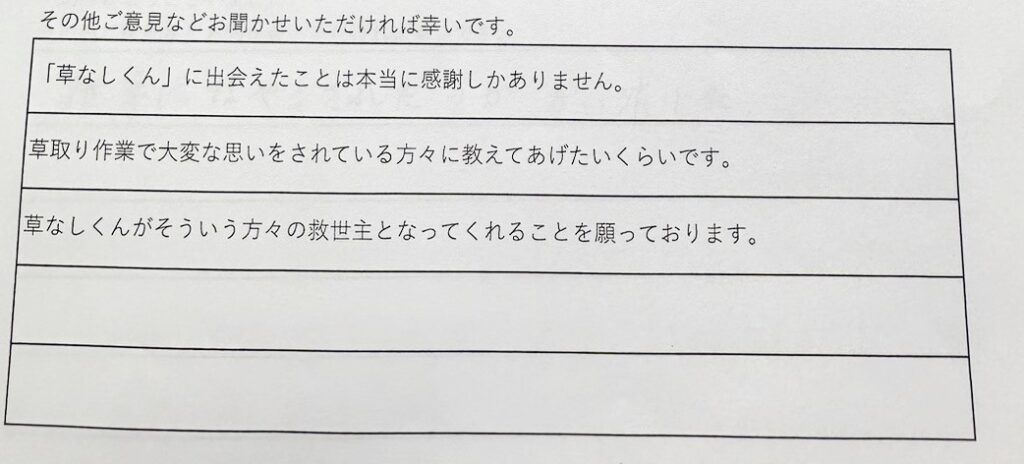 その他ご意見などお聞かせいただければ幸いです。
「草なしくん」に出会えたことは本当に感謝しかありません。
草取り作業で大変な思いをされている方々に教えてあげたいくらいです。
草なしくんがそういう方々の救世主となってくれることを願っております。